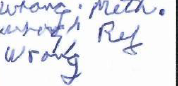 wrong. Meth.
wrong Ref
Wrong